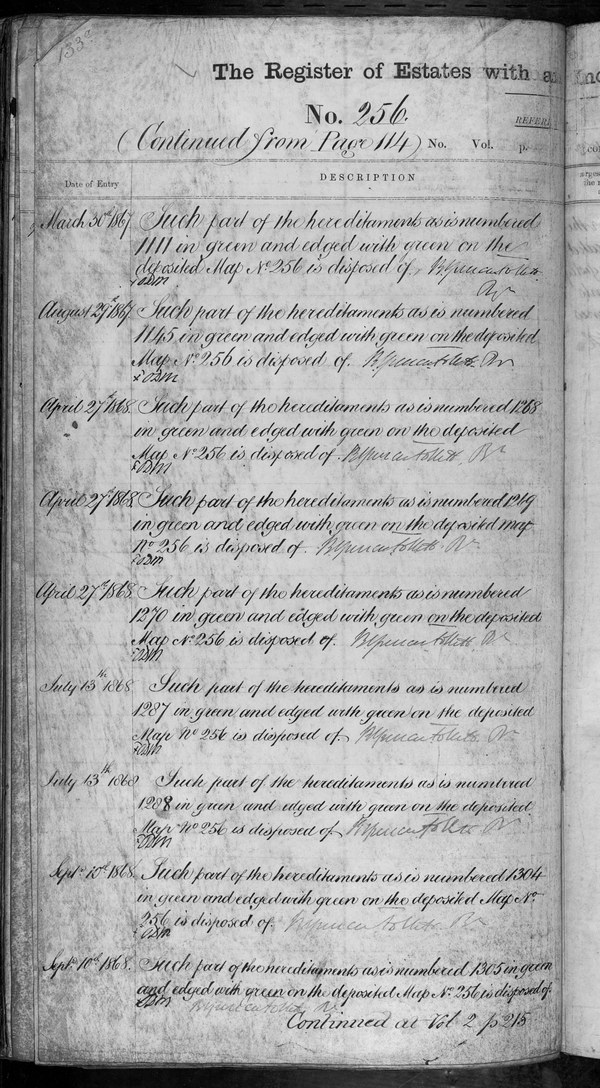 The Register of Estates with an
No. 256.
REFERE
(Continued from Page 114) No. Vol. p.
Date of Entry DESCRIPTION
March 30th 1867 Such part of the hereditaments as is numbered
1111 in green and edged with green on the
deposited Map No. 256 is disposed of. B Spencer Follett
Rr
August 29th 1867 Such part of the hereditaments as is numbered
1145 in green and edged with green on the deposited
Map No. 256 is disposed of. B Spencer Follett. Rr
April 27th 1868. Such part of the hereditaments as is numbered 1268
in green and edged with green on the deposited
Map No. 256 is disposed of. B Spencer Follett. Rr
April 27th 1868. Such part of the hereditaments as is numbered 1269
in green and edged with green on the deposited map
No 256 is disposed of. B Spencer Follett. Rr
April 27th 1868. Such part of the hereditaments as is numbered
1270 in green and edged with green on the deposited
Map No. 256 is disposed of. B Spencer Follett Rr
July 13th 1868 Such part of the hereditaments as is numbered
1287 in green and edged with green on the deposited
Map No 256 is disposed of. B Spencer Follett. Rr
July 13th 1868 Such part of the hereditaments as is numbered
1288 in green and edged with green on the deposited
Map No 256 is disposed of B Spencer Follett Rr
Septr. 10th 1868. Such part of the hereditaments as is numbered 1304
in green and edged with green on the deposited Map No.
256 is disposed of. B Spencer Follett. Rr
Septr. 10th 1868. Such part of the hereditaments as is numbered 1305 in green
and edged with green on the deposited Map No. 256 is disposed of.
B Spencer Follett Rr
Continued at Vol 2 p 215